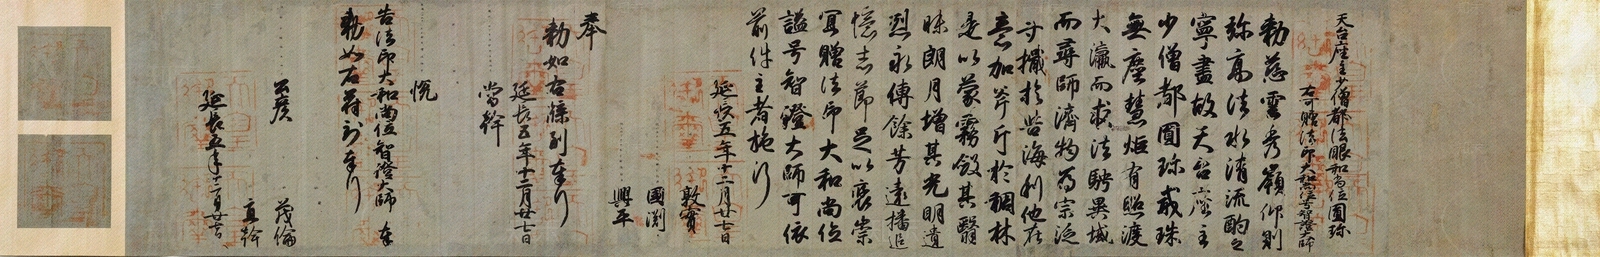 天台座主少僧都法眼和尚位圓珍
右可贈法印大和尚位号智證大師
勅慈雲秀嶺仰則
弥高法水清流酌之
寧盡故天台座主
少僧都圓珍戒珠
無塵慧炬有照渡
大瀛而求法騁異域
而尋師濟物為宗泛
寸檝於苦海利他在
意加斧斤於稠林
是以蒙霧斂其翳
昧朗月增其光明遺
烈永傳餘芳遠播追
憶志節足以褒崇
宜贈法印大和尚位
諡号智證大師可依
前件主者施行
延長五年十二月廿七日
敦實
國淵
興平
奉
勅如右牒到奉行
延長五年十二月廿七日
當幹
悅
告法印大和尚位智證大師奉
勅如右符到奉行
公彦
茂倫
直幹
延長五年十二月廿七日